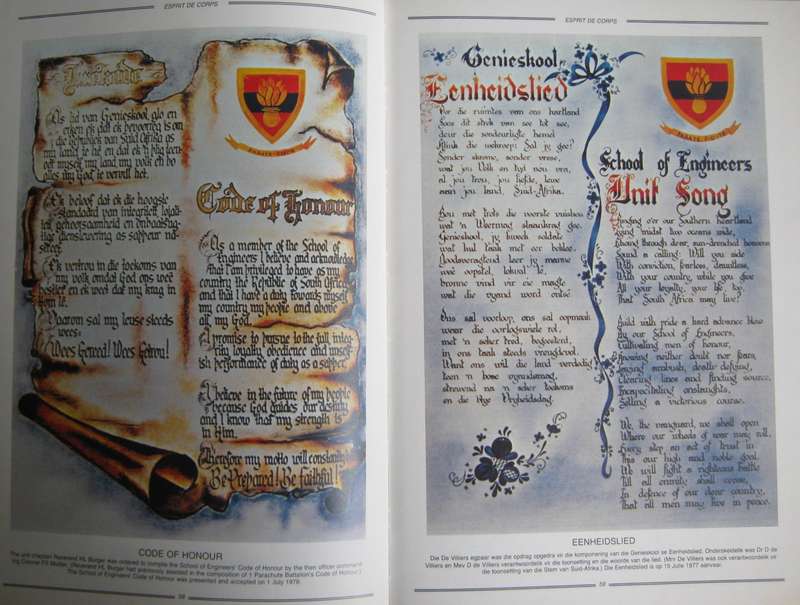 ESPRIT DE CORPS
Als lid van Genieskool, glo en
erken ek dat ek bevoorreg is om
die Republiek van Suid Afrika as
my land te hê en dat ek 'n plig teen-
oor myself, my land, my volk en bo
alles my God, te vervul het.
Ek beloof dat ek die hoogste
standaard van integriteit, lojali-
teit, gehoorsaamheid en onbaatsug-
tige dienslewering as sappeur na-
streef.
Ek vertrou in die toekoms van
my volk omdat God ons wee
bestier en ek weet dat my krag in
Hom lê.
Daarom sal my leuse steeds
wees:
Wees Gereed! Wees Getrou!
Code of Honour
As a member of the School of
Engineers I believe and acknowledge
that I am privileged to have as my
country the Republic of South Africa
and that I have a duty towards myself
my country my people and above
all, my God.
I promise to pursue to the full, integ-
rity loyalty obedience and unself-
ish performance of duty as a sapper.
I believe in the future of my people
because God guides our destiny
and I know that my strength is
in Him.
Therefore my motto will constantly
Be Prepared! Be faithful!
CODE OF HONOUR
The unit chaplain Reverend HL Burger was ordered to compile the School of Engineers' Code of Honour by the then officer command-
ing Colonel FS Mulder. (Reverend HL Burger had previously assisted in the composition of 1 Parachute Battalion's Code of Honour.)
The School of Engineers' Code of Honour was presented and accepted on 1 July 1979.
58
ESPRIT DE CORPS
Genieskool
Eenheidslied
Oor die ruimtes van ons hartland
Soos dit strek van see tot see,
deur die sondeurligte hemel
Klink die wekroep: Sal jy gee?
Sonder skrome, sonder vrese,
wat jou Volk en tyd nou vra,
al jou trou, jou liefde, lewe
aan jou land, Suid-Afrika.
Bou met trots die voorste
wat 'n Weermag
Genieskool, jy kweek soldate
wat hul taak met eer beklee.
leer jy manne
wat die vyand word ontsê
Ons sal voorloop, ons sal oopmaak
waar die oorlogswiele rol,
met 'n seker tred, begeesterd,
in ons taak steeds vreugdevol.
Want ons wil die land verdedig
teen 'n bose
strewend na 'n seker toekoms
en die Vryheidsdag.
School of Engineers
Unit Song
Ringing o'er our Southern heartland
Lying midst two oceans wide,
Echoing through clear, sun-drenched heavens
Sound is calling: Will you side
With conviction, fearless, dauntless,
With your country, while you give
All your loyalty, your life, too,
That South Africa may live?
Build with pride a hard advance
by our School of Engineers,
Cultivating men of honour,
Knowing neither doubt nor fears,
Laying ambush, death defying,
Clearing lines and finding source,
Incapacitating onslaughts,
Selling a victorious course.
We, the vanguard, we shall open
Where our wheels of war may roll,
Every step an act of trust in
This our high and noble goal.
We will fight a righteous battle
Till all enmity shall cease,
In defence of our dear country,
That all men may live in peace.
EENHEIDSLIED
Die De Villiers egpaar was die opdrag opgedra vir die komponering van die Genieskool se Eenheidslied. Onderskeidelik was Dr D de
Villiers en Mev D de Villiers verantwoordelik vir die toonsetting en die woorde van die lied. (Mnr De Villiers was ook verantwoordelik vir
die toonsetting van die Stem van Suid-Afrika.) Die Eenheidslied is op 15 Junie 1977 aanvaar.
59